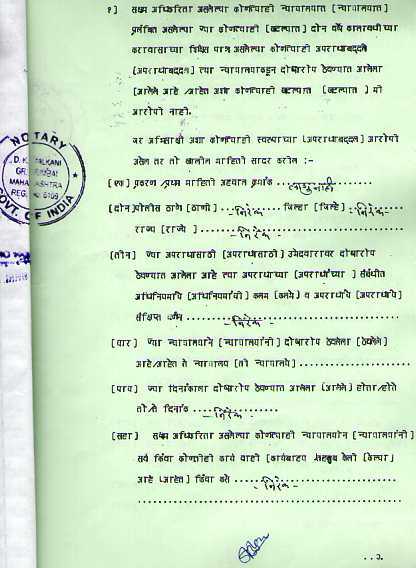 १] सक्षम अधिकारिता असलेल्या कोणत्याही न्यायालयात [न्यायालयात]
प्रलंबित असलेल्या ज्या कोणत्याही [खटल्यात] दोन वर्षे कालावधीच्या
कारावासाच्या शिक्षेस पात्र असलेल्या कोणत्याही अपराधाबद्दल
[अपराधाबद्दल] त्या न्यायालयाकडून दोषारोप ठेवण्यात आलेला
[आलेले आहे /आहेत अशा कोणत्याही खटल्यात [खटल्यात ] मी
आरोपी नाही.
जर अभिसाक्षी अशा कोणत्याही स्वरूपाच्या [अपराधाबद्दल] आरोपी
असेल तर तो खालील माहिती सादर करील :-
[एक] प्रकरण /प्रथम माहिती अहवाल क्रमांक ..लागू नाही..
[दोन]पोलीस ठाणे [ठाणी] ..-निरंक-.. जिल्हा [जिल्हे] ..-निरंक-..
राज्य [राज्ये ] ..-निरंक-..
[तीन] ज्या अपराधासाठी [अपराधांसाठी] उमेदवारावर दोषारोप
ठेवण्यात आलेला आहे त्या अपराधाच्या [अपराधांच्या ] संबंधीत
अधिनियमाचे [अधिनियमांची] कलम [कलमे] व अपराधाचे [अपराधांचे]
संक्षिप्त वर्णन ..-निरंक-..
[चार] ज्या न्यायालयाने [न्यायालयांनी] दोषारोप ठेवलेला [ठेवलेले]
आहे/आहेत ते न्यायालय [ती न्यायालये] ....................
[पाच] ज्या दिनांकाला दोषारोप ठेवण्यात आलेला [आलेले] होता/होते
तो/ते दिनांक ..-निरंक-..
[सहा] सक्षम अधिकारिता असलेल्या कोणत्याही न्यायालयाने [न्यायालयांनी]
सर्व किंवा कोणतीही कार्य वाही [कार्यवाहया तहकूब केली [केल्या]
आहे [आहेत] किंवा कसे ..-निरंक-..
..२.
NOTARY
GOVT. OF INDIA